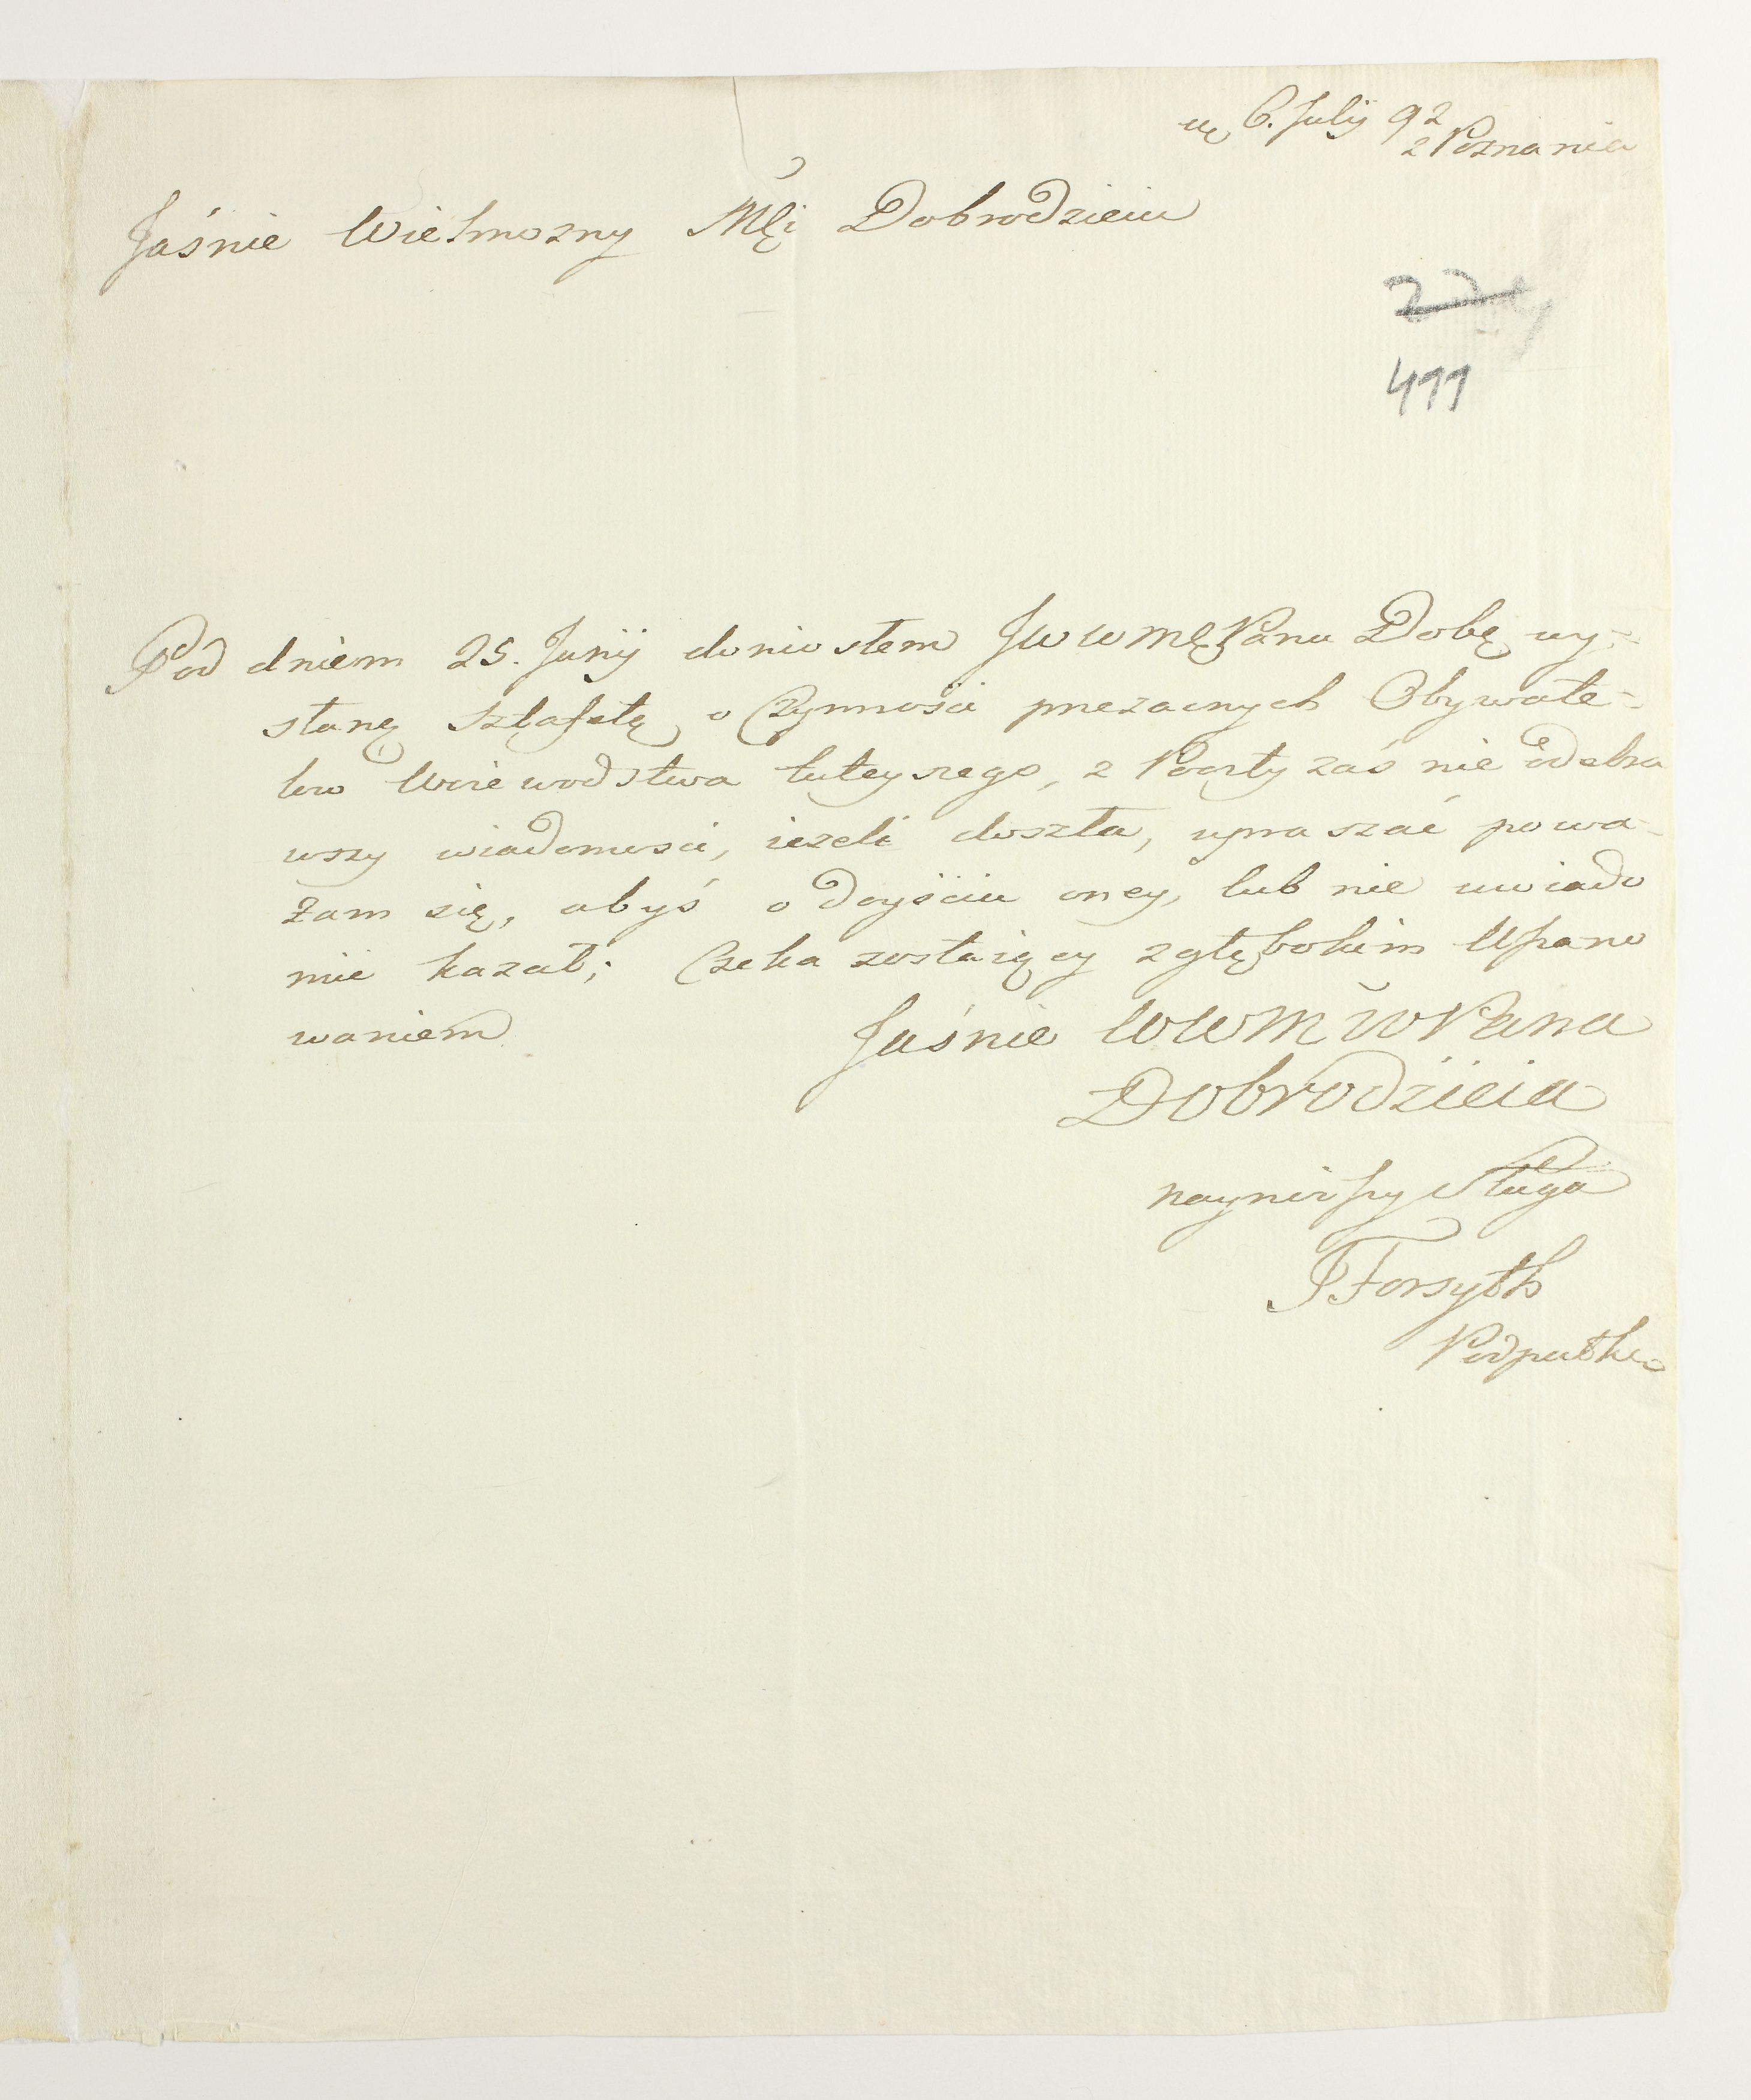 6. Julij 92
z Poznania
Jaśnie Wielmozny Mći Dobrodzieiu
499
Pod dniem 25. Junij doniosłem JWWMę Panu Dobę wy-
słaną sztafetę o Czynności przezacnych Obywate-
low Woiewodstwa tuteyszego, z Poczty zaś nie odebra
wszy wiadomosci, iezeli doszła, upraszać powa-
żam się, abyś o doyściu oney, lub nie uwiado
mić kazał; Czeka zostaiący z głębokim Uszano
waniem Jaśnie WWM W Pana
Dobrodzieia
nayniższy Sługa
JForsyth
Podpułk